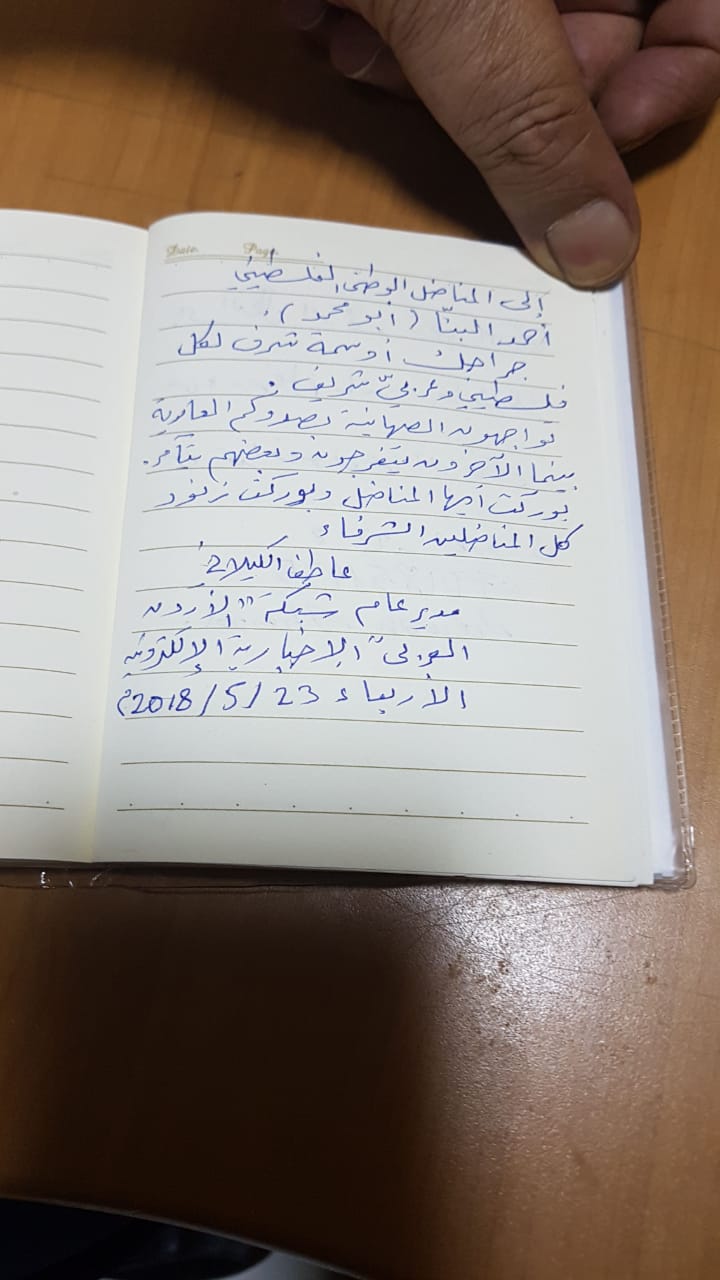 Date: Page:
إلى المناضل الوطني الفلسطيني
أحمد البنّا (أبو محمد)،
جراحك أوسمة شرف لكل
فلسطيني وعربيّ شريف.
تواجهون الصهاينة بصدوركم العارية
بينما الآخرون يتفرجون وبعضهم يتآمر.
بوركت أيها المناضل وبوركت زنود
كل المناضلين الشرفاء
عاطف الكيلاني
مدير عام شبكة "الأردن
العربي" الإخبارية الإلكترونية
الأربعاء 23/5/2018م